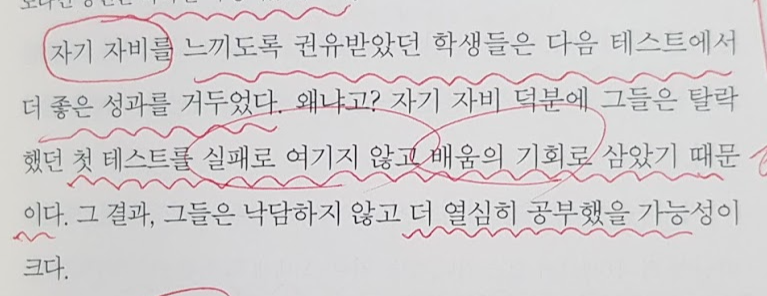 자기 자비를 느끼도록 권유받았던 학생들은 다음 테스트에서
더 좋은 성과를 거두었다. 왜냐고? 자기 자비 덕분에 그들은 탈락
했던 첫 테스트를 실패로 여기지 않고 배움의 기회로 삼았기 때문
이다. 그 결과, 그들은 낙담하지 않고 더 열심히 공부했을 가능성이
크다.